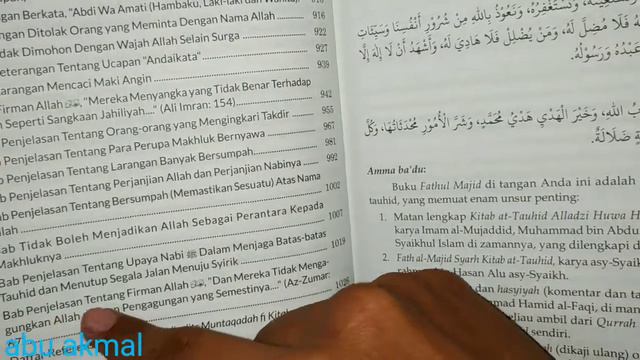 gan Berkata, "Abdi Wa Amati (Hambaku, Laki-laki dan
ngan Ditolak Orang yang Meminta Dengan Nama Allah .......... 916
idak Dimohon Dengan Wajah Allah Selain Surga .......... 922
eterangan Tentang Ucapan "Andaikata" .......... 927
Larangan Mencaci Maki Angin .......... 939
Firman Allah ﷻ, "Mereka Menyangka yang Tidak Benar Terhadap
Seperti Sangkaan Jahiliyah...." (Ali Imran: 154) .......... 942
Penjelasan Tentang Orang-orang yang Mengingkari Takdir .......... 955
Penjelasan Tentang Para Perupa Makhluk Bernyawa .......... 967
b Penjelasan Tentang Larangan Banyak Bersumpah .......... 981
b Penjelasan Tentang Perjanjian Allah dan Perjanjian Nabinya .......... 992
b Penjelasan Tentang Bersumpah (Memastikan Sesuatu) Atas Nama
llah .......... 1002
Bab Tidak Boleh Menjadikan Allah Sebagai Perantara Kepada
Makhluknya .......... 1007
Bab Penjelasan Tentang Upaya Nabi ﷺ Dalam Menjaga Batas-batas
Tauhid dan Menutup Segala Jalan Menuju Syirik .......... 1019
Bab Penjelasan Tentang Firman Allah ﷻ, "Dan Mereka Tidak Menga-
gungkan Allah Pengagungan yang Semestinya..." (Az-Zumar:
Muntaqadah fi Kitab
وَنَسْتَغْفِرُهُ، وَنَعُوذُ بِاللهِ مِنْ شُرُورِ أَنْفُسِنَا وَسَيِّئَاتِ
فَلَا مُضِلَّ لَهُ، وَمَنْ يُضْلِلْ فَلَا هَادِيَ لَهُ، وَأَشْهَدُ أَنْ لَا إِلَهَ إِلَّا
عَبْدُهُ وَرَسُولُهُ.
اللهِ، وَخَيْرَ الْهَدْيِ هَدْيُ مُحَمَّدٍ، وَشَرَّ الْأُمُورِ مُحْدَثَاتُهَا، وَكُلَّ
ضَلَالَةٌ.
Amma ba'du:
Buku Fathul Majid di tangan Anda ini adalah
tauhid, yang memuat enam unsur penting:
1. Matan lengkap Kitab at-Tauhid Alladzi Huwa H
karya Imam al-Mujaddid, Muhammad bin Abdu
Syaikhul Islam di zamannya, yang dilengkapi d
2. Fath al-Majid Syarh Kitab at-Tauhid, karya asy-Sya
Hasan Alu asy-Syaikh.
hasyiyah (komentar dan ta
mad Hamid al-Faqi, di man
eliau ambil dari Qurrah
sendiri.
(dikaji ulang) o
abu akmal